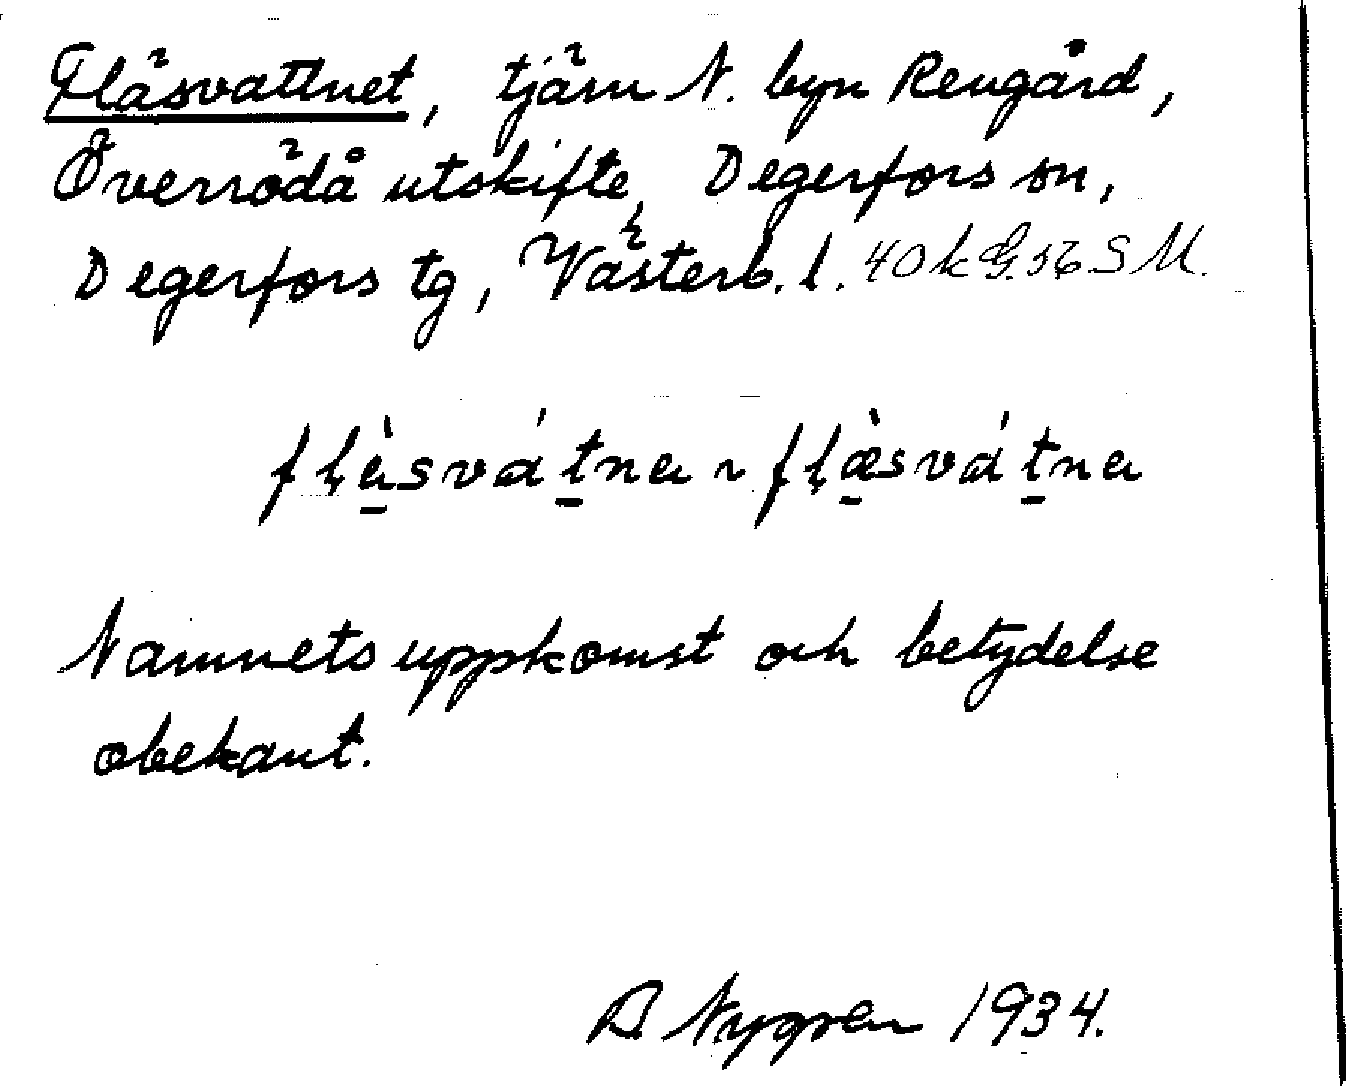 Fläsvattnet, tjärn N. byn Rengård,
Överrödå utskifte, Degerfors sn,
Degerfors tg, Västerb. l. 40 k G. 56 S M.
fḷà̱sváṯna ~ fḷæ̱̀sváṯna
Namnets uppkomst och betydelse
obekant.
A. Nygren 1934.